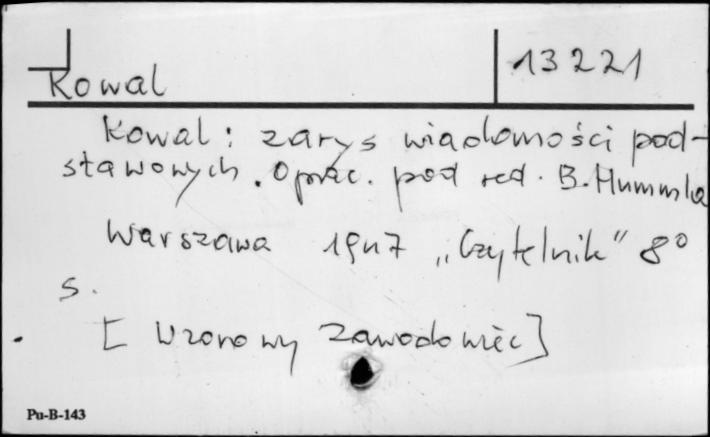 Kowal
13221
Kowal: zarys wiadomości pod-
stawowych. Oprac. pod red. B. Hummla
Warszawa 1947 „Czytelnik” 8°
s.
[Wzorowy Zawodowiec]
Pu-B-143